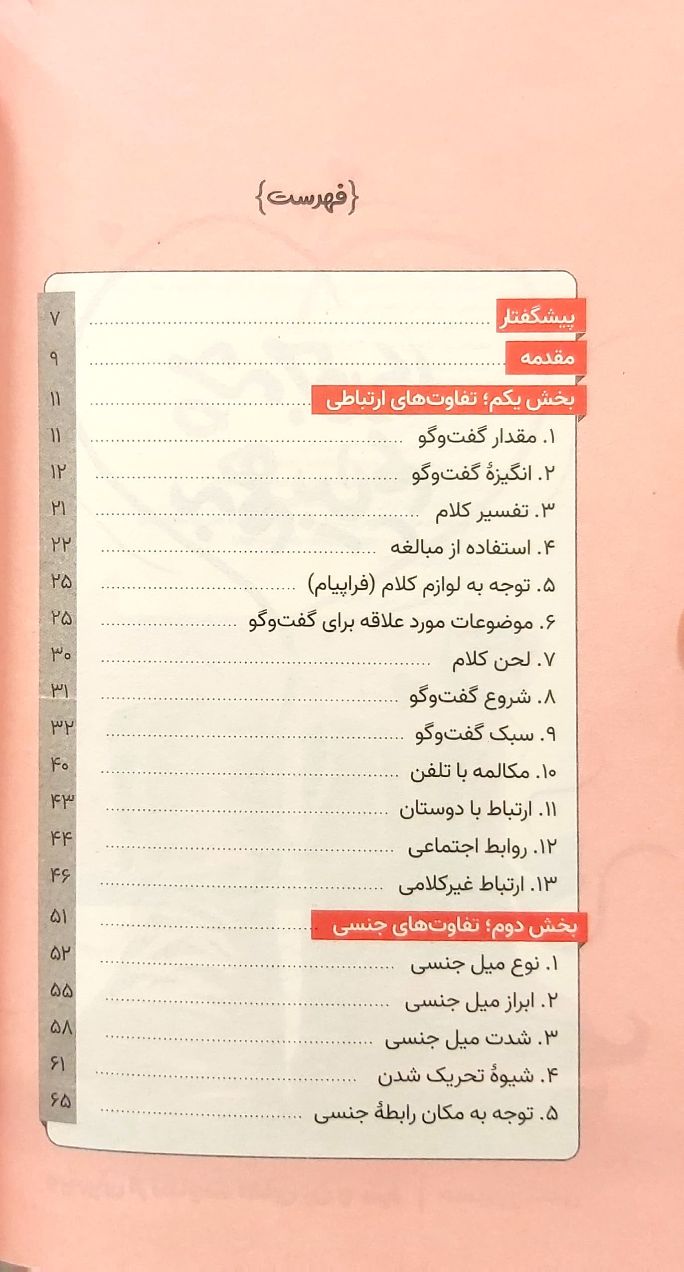 {فهرست}
پیشگفتار ۷
مقدمه ۹
بخش یکم؛ تفاوت‌های ارتباطی ۱۱
۱. مقدار گفت‌وگو ۱۱
۲. انگیزهٔ گفت‌وگو ۱۲
۳. تفسیر کلام ۲۱
۴. استفاده از مبالغه ۲۲
۵. توجه به لوازم کلام (فراپیام) ۲۵
۶. موضوعات مورد علاقه برای گفت‌وگو ۲۵
۷. لحن کلام ۳۰
۸. شروع گفت‌وگو ۳۱
۹. سبک گفت‌وگو ۳۲
۱۰. مکالمه با تلفن ۴۰
۱۱. ارتباط با دوستان ۴۳
۱۲. روابط اجتماعی ۴۴
۱۳. ارتباط غیرکلامی ۴۶
بخش دوم؛ تفاوت‌های جنسی ۵۱
۱. نوع میل جنسی ۵۲
۲. ابراز میل جنسی ۵۵
۳. شدت میل جنسی ۵۸
۴. شیوهٔ تحریک شدن ۶۱
۵. توجه به مکان رابطهٔ جنسی ۶۵